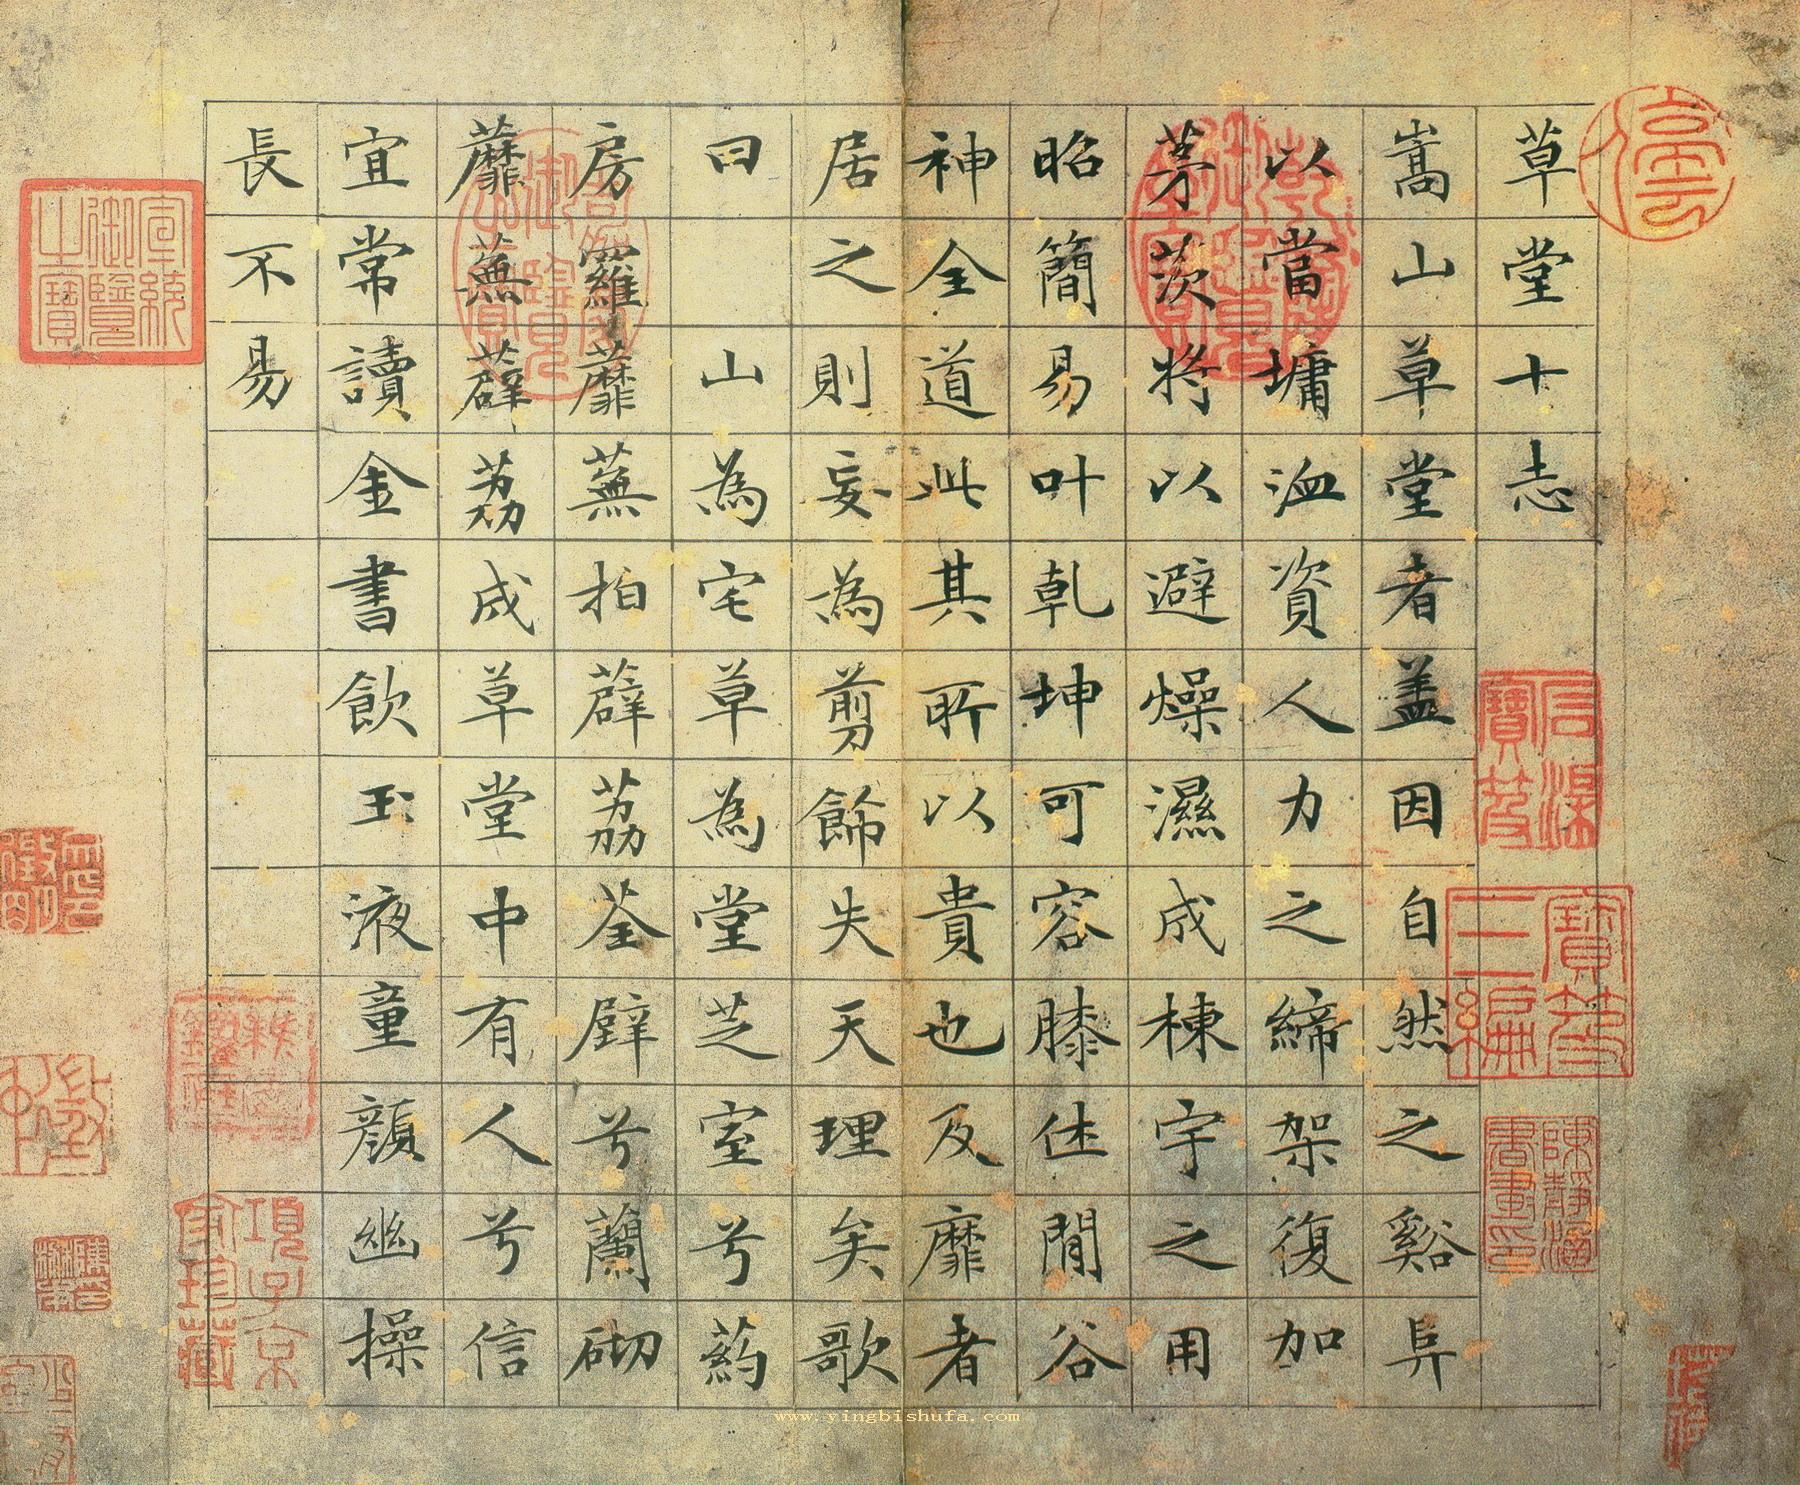 草堂十志
嵩山草堂者盖因自然之谿阜
以當墉洫資人力之締架復加
茅茨將以避燥濕成棟宇之用
昭簡易叶乾坤可容膝休閒谷
神全道此其所以貴也及靡者
居之則妄為剪餙失天理矣歌
曰 山為宅草為堂芝室兮葯
房羅蘼蕪拍薜荔荃壁兮蘭砌
蘼蕪薜荔成草堂中有人兮信
宜常讀金書飲玉液童顏幽操
長不易
宣統御覽之寶
寶笈三編
項子京家珍藏
www.yingbishufa.com